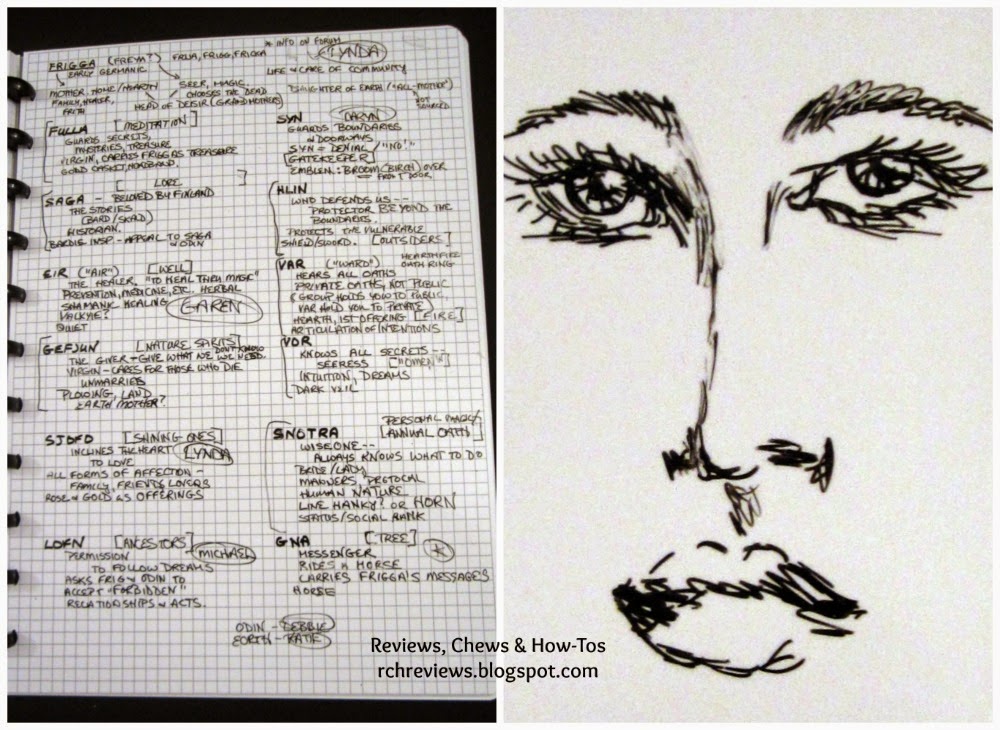 * INFO ON FORUM
FRIGGA (FREYA?) FRIJA, FRIGG, FRICKA
LYNDA
EARLY GERMANIC
LIFE & CARE OF COMMUNITY
MOTHER, HOME/HEARTH
FAMILY, HEALER,
FAITH
SEER, MAGIC.
CHOOSES THE DEAD
HEAD OF DEISIR (GRANDMOTHERS)
DAUGHTER OF EARTH ("ALL-MOTHER")
NOT
FULLA [MEDITATION]
GUARDS SECRETS,
MYSTERIES, TREASURE
VIRGIN, CARRIES FRIGGAS TREASURE
GOLD CASKET, HEADBAND.
[LORE]
SAGA - BELOVED BY FINLAND
THE STORIES
(BARD/SKALD)
HISTORIAN.
BARDIC INSP - APPEAL TO SAGA
& ODIN
EIR ("AIR") [WELL]
THE HEALER, "TO HEAL THRU MAGIC"
PREVENTION, MEDICINE, ETC. HERBAL
SHAMANIC HEALING
VALKYIE?
QUIET
GAREN
GEFJUN [NATURE SPIRITS]
THE GIVER - GIVE WHAT WE DON'T KNOW WE NEED.
VIRGIN - CARES FOR THOSE WHO DIE
UNMARRIED
PLOWING, LAND
EARTH MOTHER?
SJOFD [SHINING ONES]
INCLINES THE HEART
TO LOVE
LYNDA
ALL FORMS OF AFFECTION -
FAMILY, FRIENDS LOVERS
ROSE & GOLD AS OFFERINGS
LOFN [ANCESTORS]
PERMISSION
TO FOLLOW DREAMS
MICHAEL
ASKS FRIG & ODIN TO
ACCEPT "FORBIDDEN"
RELATIONSHIPS & ACTS.
SYN DARYN
GUARDS BOUNDARIES
& DOORWAYS
SYN = DENIAL / "NO!"
[GATEKEEPER]
EMBLEM: BROOM (BIRCH) OVER
FRONT DOOR
HLIN
WHO DEFENDS US --
PROTECTOR BEYOND THE
BOUNDARIES.
PROTECTS THE VULNERABLE
SHIELD/SWORD. [OUTSIDERS]
VAR ("WARD") HEARTHFIRE
OATH RING
HEARS ALL OATHS
PRIVATE OATHS, NOT PUBLIC
(GROUP HOLDS YOU TO PUBLIC,
VAR HOLD YOU TO PRIVATE)
HEARTH, 1ST OFFERING [FIRE]
ARTICULATION OF INTENTIONS
VOR
KNOWS ALL SECRETS --
SEERESS ["OMEN"]
INTUITION, DREAMS
DARK VEIL
PERSONAL MAGIC/
SNOTRA [ANNUAL OATH]
WISE ONE --
ALWAYS KNOWS WHAT TO DO
BRIDE/LADY
MANNERS, PROTOCAL
HUMAN NATURE
LINE HANKY? OR HORN
STATUS/SOCIAL RANK
GNA [TREE]
MESSENGER
RIDES A HORSE
CARRIES FRIGGA'S MESSAGES
HORSE
ODIN - DEBBIE
EORTH - KATIE
Reviews, Chews & How-Tos
rchreviews.blogspot.com